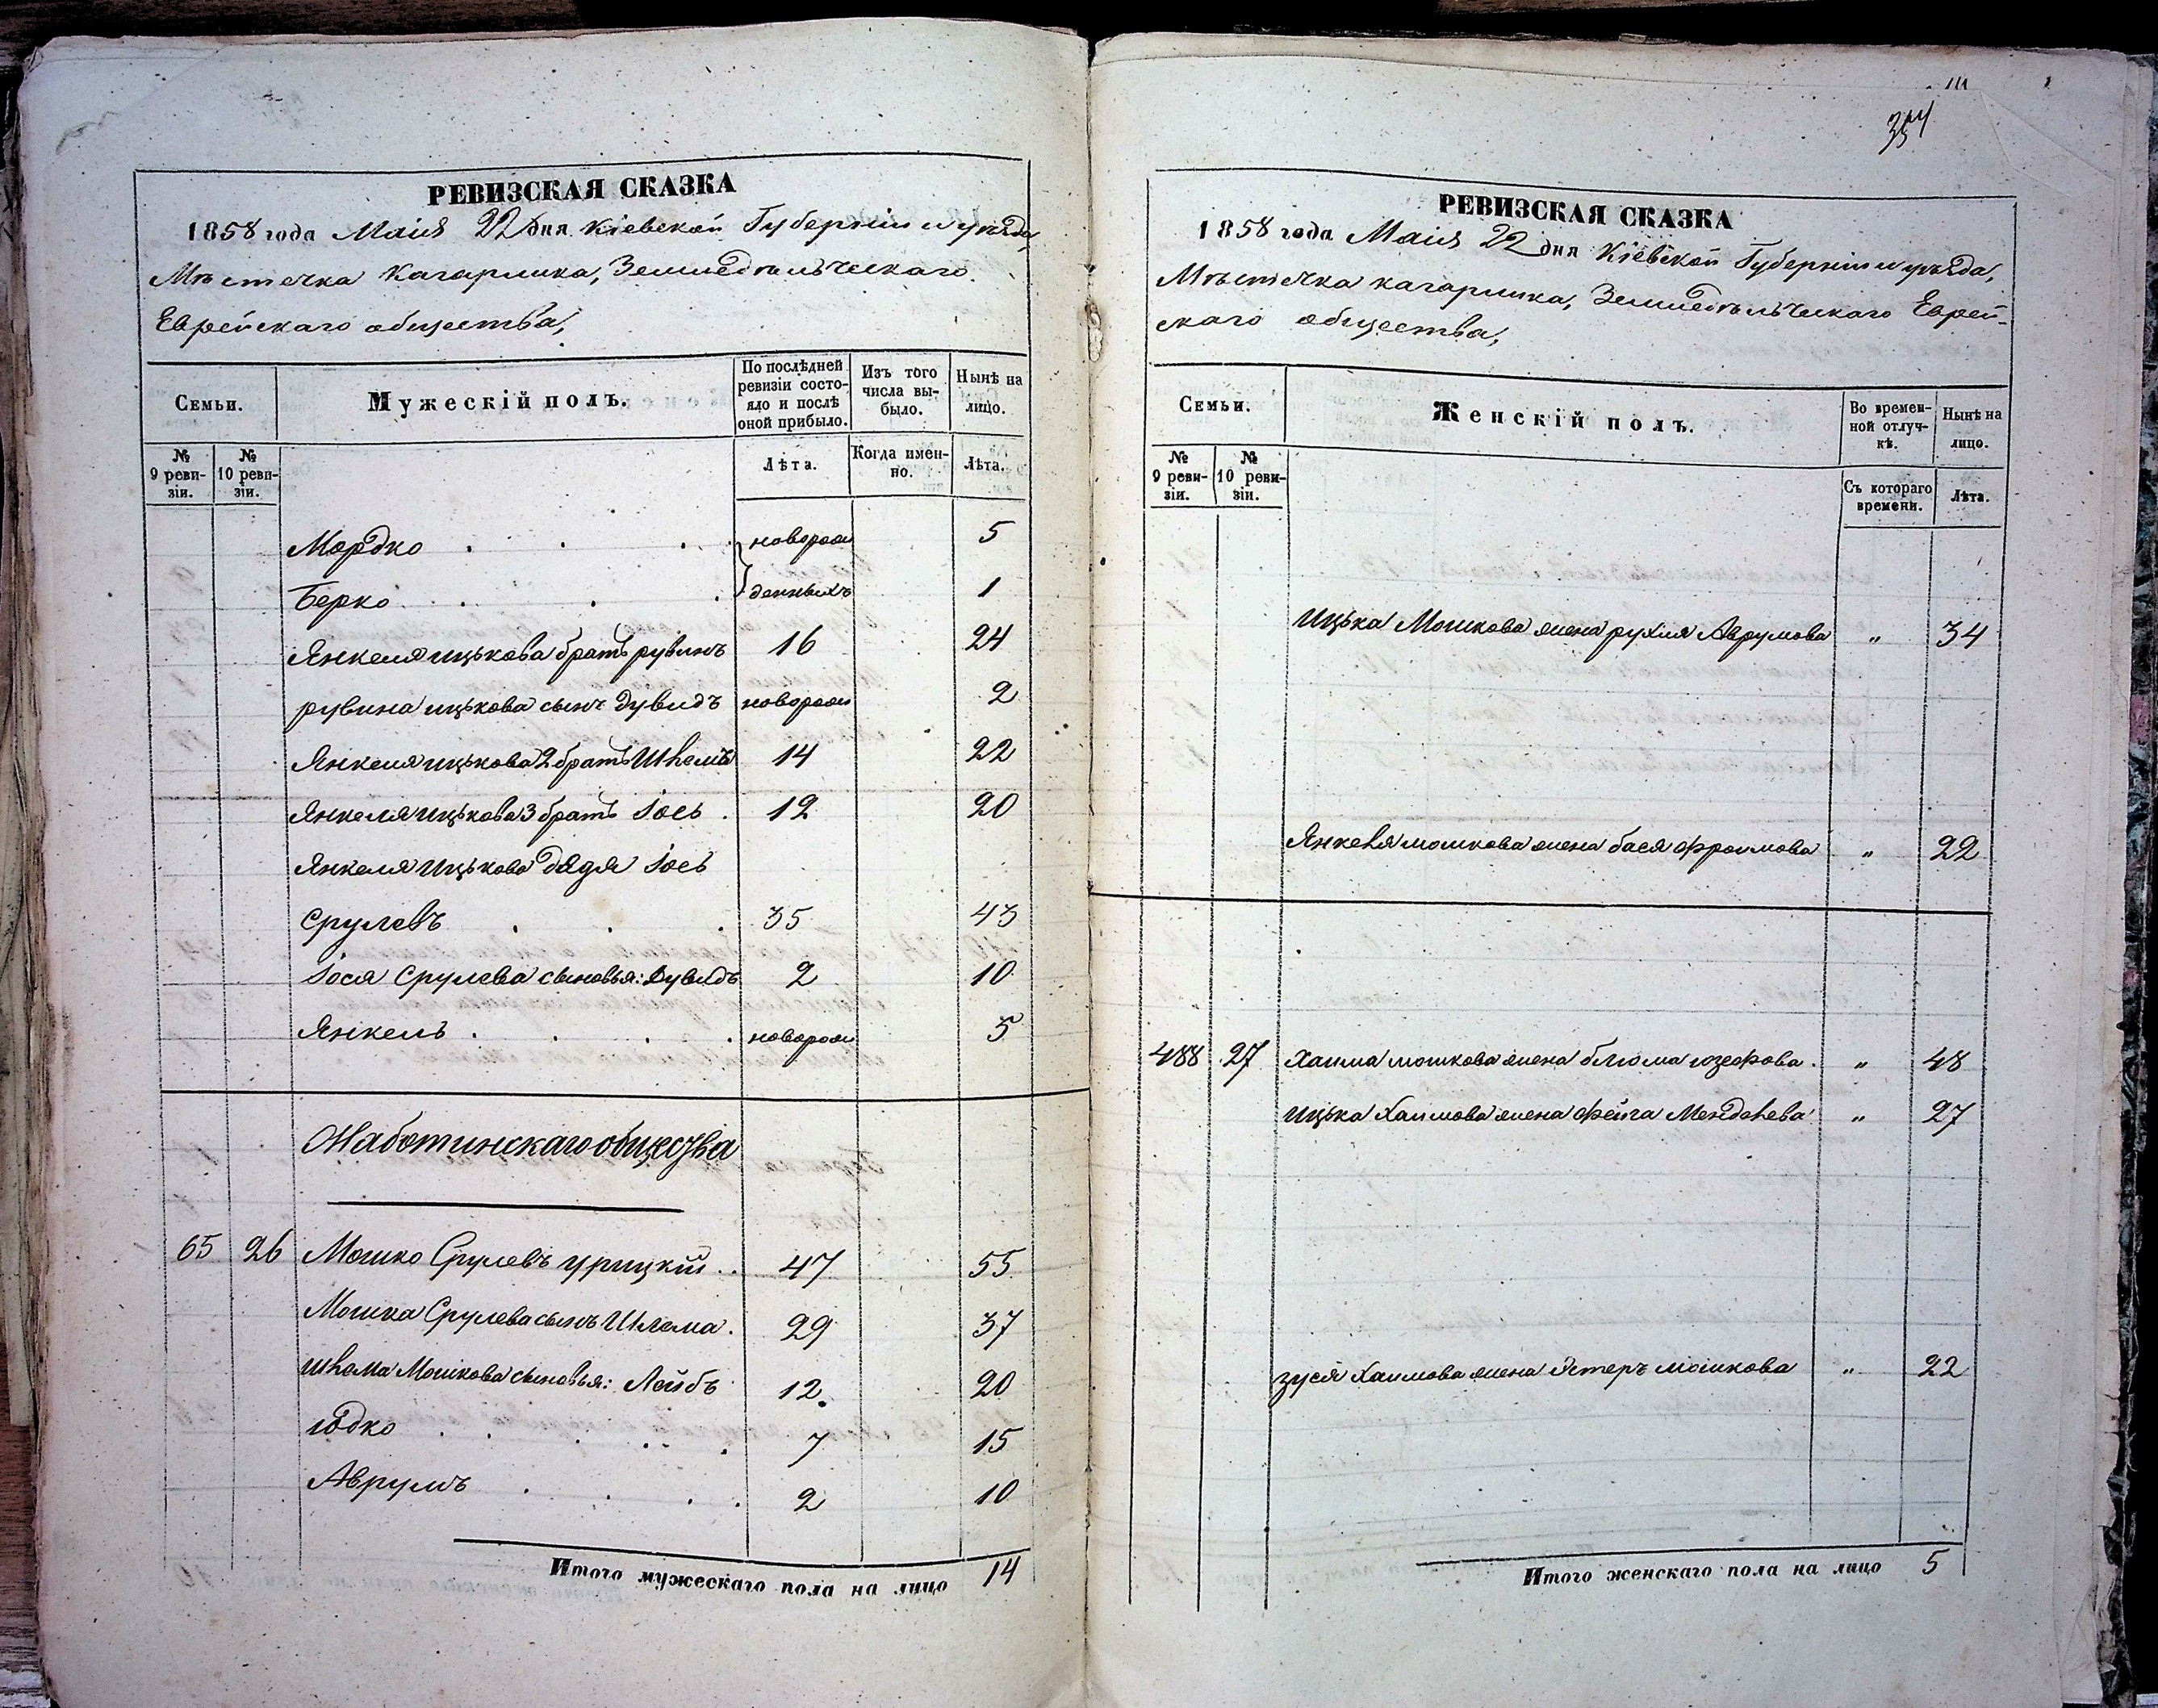 РЕВИЗСКАЯ СКАЗКА
1858 года Маія 22 дня Кіевской Губерніи и уѣзда
Мѣстечка Кагарлика, Земледѣльческаго
Еврейскаго общества,
Семьи.
Мужескій полъ.
По послѣдней ревизіи состояло и послѣ оной прибыло.
Изъ того числа выбыло.
Нынѣ на лицо.
№ 9 ревизіи.
№ 10 ревизіи.
Лѣта.
Когда именно.
Лѣта.
Мордко новорож 5
Берко денныхъ 1
Янкеля ицькова братъ рувинъ 16 24
рувина ицькова сынъ Дувидъ новорож 2
Янкеля ицькова 2 братъ Шлема 14 22
Янкеля ицькова 3 братъ Іось 12 20
Янкеля Ицькова дядя Іось
Срулевъ 35 43
Іося Срулева сыновья: Дувидъ 2 10
Янкель новорож 5
Жаботинскаго общества
65 26 Мошко Срулевъ урицкій 47 55
Мошка Срулева сынъ Шлема 29 37
Шлема Мошкова сыновья: Лейбъ 12 20
юдко 7 15
Аврумъ 2 10
Итого мужескаго пола на лицо 14
354
РЕВИЗСКАЯ СКАЗКА
1858 года Маія 22 дня Кіевской Губерніи и уѣзда,
Мѣстечка кагарлика, Земледѣльческаго Еврей-
скаго общества,
Семьи.
Женскій полъ.
Во временной отлучкѣ.
Нынѣ на лицо.
№ 9 ревизіи.
№ 10 ревизіи.
Съ котораго времени.
Лѣта.
Ицька Мошкова жена рухля Аврумова " 34
Янкеля мошкова жена бася Фроимова " 22
488 27 Хаима мошкова жена блюма юзефова " 48
Ицька Хаимова жена Фейга Менделева " 27
зуся Хаимова жена Эстеръ мошкова " 22
Итого женскаго пола на лицо 5